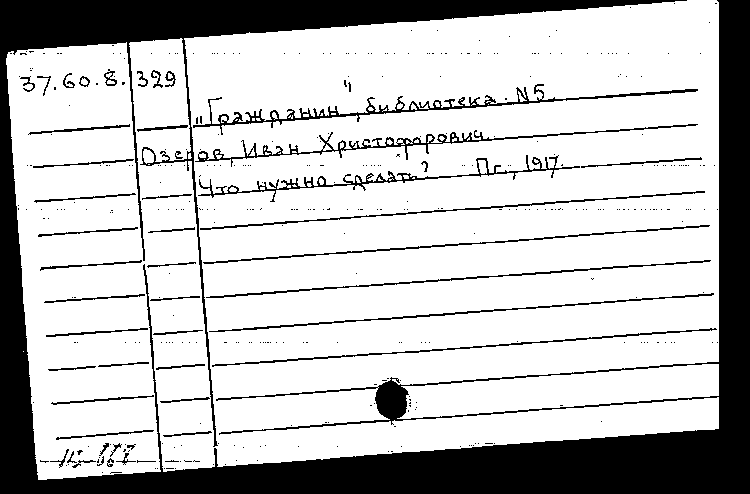 37.60.8. 329
„Гражданин“, библиотека. N5.
Озеров, Иван Христофорович.
Что нужно сделать? Пг., 1917.